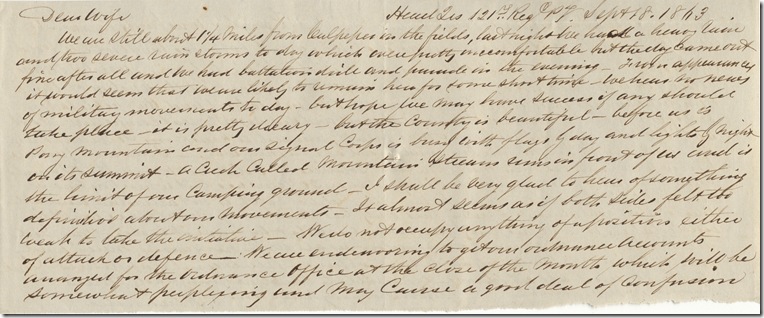 Dear Wife Head Qrs 121st Regt P.V. Sept 18. 1863
We are still about 1 3/4 miles from Culpeper in the fields, last night we had a heavy rain
and two severe rain storms to day which were pretty uncomfortable but the day came out
fine after all and We had battalion drill and parade in the evening — From appearances
it would seem that We are likely to remain here for some short time — We hear no news
of military movements to day — but hope We may have success if any should
take place — it is pretty dreary — but the Country is beautiful — before us is
Pony Mountain and our Signal Corps is busy with flags by day and lights by night
on its summit — a Creek Called Mountain Stream runs in front of us and is
the limit of our Camping ground — I shall be very glad to hear of something
definitive about our movements — It almost seems as if both sides felt too
weak to take the initiative — We do not occupy anything of a position either
of attack or defence — We are endeavoring to get our ordnance accounts
arranged for the Ordnance Office at the close of the month which will be
somewhat perplexing and May Cause a good deal of Confusion